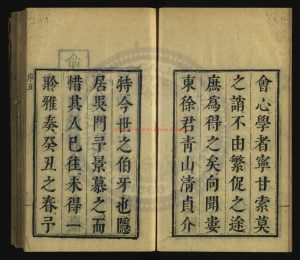 會心學者寧甘索莫
之誚不由繁促之途
庶為得之矣向聞婁
東徐君青山清貞介
特今世之伯牙也隱
居吳門予景慕之而
惜其人已往未得一
聆雅奏癸丑之春予
序五